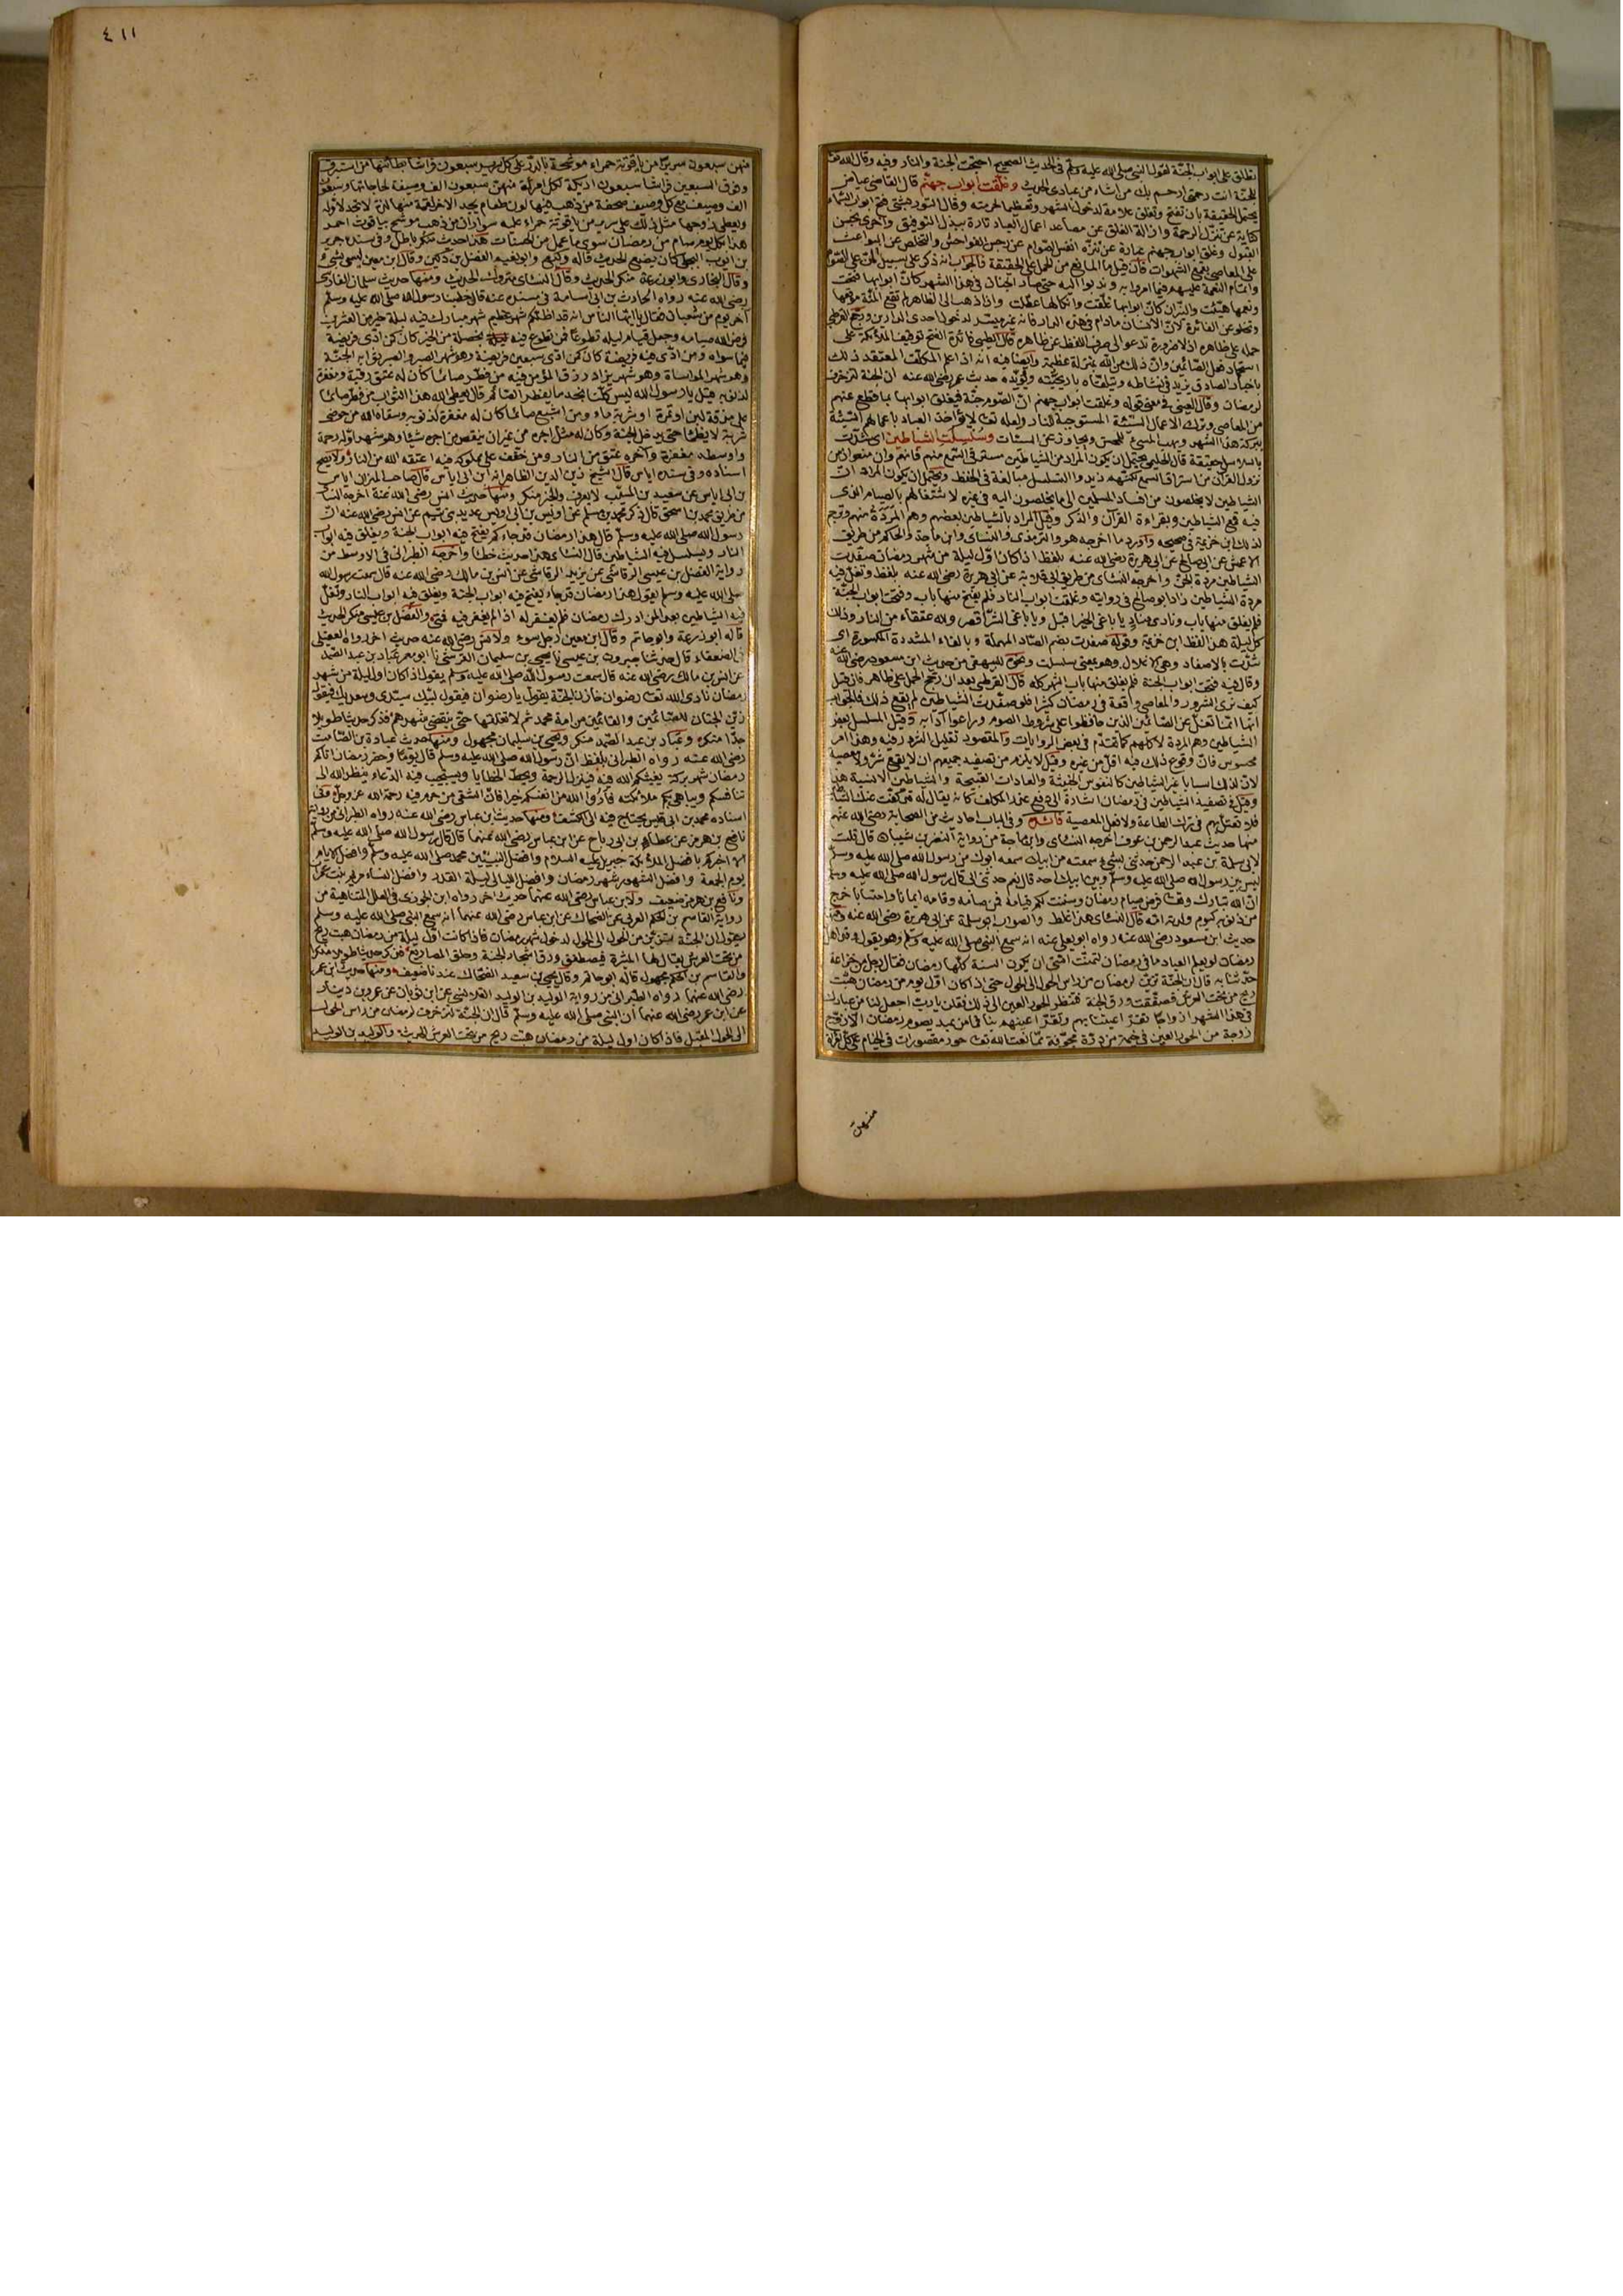 تغلق على ابواب الجنة لقول النبي صلى الله عليه وسلم في الحديث الصحيح احتجت الجنة والنار وفيه وقال الله تعالى
للجنة انت رحمتي ارحم بك من اشاء من عبادي الحديث وغلقت ابواب جهنم قال القاضي عياض
يحتمل الحقيقة بان تفتح وتغلق علامة لدخول الشهر وتعظيما لحرمته وقال التوربشتي فتح ابواب السماء
كناية عن تنزل الرحمة وازالة الغلق عن مصاعد اعمال العباد تارة ببذل التوفيق واخرى بحسن
القبول وغلق ابواب جهنم عبارة عن تنزه انفس الصوام عن رجس الفواحش والتخلص عن البواعث
على المعاصي بقمع الشهوات فان قيل ما المانع من الحمل على الحقيقة فالجواب انه ذكر على سبيل المن على الصوام
واتمام النعمة عليهم فيما امروا به وندبوا اليه حتى صار الجنان في هذا الشهر كان ابوابها فتحت
ونعيمها هيئت والنيران كان ابوابها غلقت وانكالها عطلت واذا ذهب الى الظاهر لم تقع المنة موقعها
وتخلو عن الفائدة لان الانسان ما دام في هذه الدار فانه غير ميسر لدخول احدى الدارين ورجح القرطبي
حمله على ظاهره اذ لا ضرورة تدعو الى صرف اللفظ عن ظاهره قال الطيبي فائدة الفتح توقيف الملائكة على
استحماد فعل الصائمين وان ذلك من الله بمنزلة عظيمة وايضا فيه انه اذا علم المكلف المعتقد ذلك
باخبار الصادق يزيد في نشاطه ويتلقاه باريحيته ويؤيده حديث عمر رضي الله عنه ان الجنة لتزخرف
لرمضان وقال العيني في معنى قوله وغلقت ابواب جهنم ان الصوم جنة فيغلق ابوابها بما قطع عنهم
من المعاصي وترك الاعمال السيئة المستوجبة للنار ولعله تعالى لا يؤاخذ العباد باعمالهم السيئة
ببركة هذا الشهر ويهب المسيء للمحسن ويجاوز عن السيئات وسلسلت الشياطين اي شدت
بالسلاسل حقيقة قال الحليمي يحتمل ان يكون المراد من الشياطين مسترقي السمع منهم فانهم وان منعوا زمن
نزول القرآن من استراق السمع لكنهم زيدوا التسلسل مبالغة في الحفظ ويحتمل ان يكون المراد ان
الشياطين لا يخلصون من افساد المسلمين الى ما يخلصون اليه في غيره لاشتغالهم بالصيام الذي
فيه قمع الشياطين وبقراءة القرآن والذكر وقيل المراد بالشياطين بعضهم وهم المردة منهم وترجم
لذلك ابن خزيمة في صحيحه واورد ما اخرجه هو والترمذي والنسائي وابن ماجة والحاكم من طريق
الاعمش عن ابي صالح عن ابي هريرة رضي الله عنه بلفظ اذا كان اول ليلة من شهر رمضان صفدت
الشياطين مردة الجن واخرجه النسائي من طريق ابي قلابة عن ابي هريرة رضي الله عنه بلفظ وتغل فيه
مردة الشياطين زاد ابو صالح في روايته وغلقت ابواب النار فلم يفتح منها باب وفتحت ابواب الجنة
فلم يغلق منها باب ونادى مناد يا باغي الخير اقبل ويا باغي الشر اقصر ولله عتقاء من النار وذلك
كل ليلة هذا لفظ ابن خزيمة وقوله صفدت بضم الصاد المهملة وبالفاء المشددة المكسورة اي
شدت بالاصفاد وهي الاغلال وهو بمعنى سلسلت ونحوه للبيهقي من حديث ابن مسعود رضي الله عنه
وقال فيه فتحت ابواب الجنة فلم يغلق منها باب الشهر كله قال القرطبي بعد ان رجح الحمل على ظاهره فان قيل
كيف نرى الشرور والمعاصي واقعة في رمضان كثيرا فلو صفدت الشياطين لم يقع ذلك فالجواب
انها انما تغل عن الصائمين الذين حافظوا على شروط الصوم وراعوا آدابه وقيل المسلسل بعض
الشياطين وهم المردة لا كلهم كما تقدم في بعض الروايات والمقصود تقليل الشرور فيه وهذا امر
محسوس فان وقوع ذلك فيه اقل من غيره وقيل لا يلزم من تصفيد جميعهم ان لا يقع شر ولا معصية
لان لذلك اسبابا غير الشياطين كالنفوس الخبيثة والعادات القبيحة والشياطين الانسية
وقيل في تصفيد الشياطين في رمضان اشارة الى رفع عذر المكلف كانه يقال له قد كفت عنك الشياطين
فلا تعتل بهم في ترك الطاعة ولا فعل المعصية وفي الباب احاديث من الصحابة رضي الله عنهم
منها حديث عبد الرحمن بن عوف اخرجه النسائي وابن ماجة من رواية النضر بن شيبان قال قلت
لابي سلمة بن عبد الرحمن حدثني بشيء سمعته من ابيك سمعه ابوك من رسول الله صلى الله عليه وسلم
ليس بين رسول الله صلى الله عليه وسلم وبين ابيك احد قال نعم حدثني ابي قال رسول الله صلى الله عليه وسلم
ان الله تبارك وتعالى فرض صيام رمضان وسننت لكم قيامه فمن صامه وقامه ايمانا واحتسابا خرج
من ذنوبه كيوم ولدته امه قال النسائي هذا غلط والصواب ابو سلمة عن ابي هريرة رضي الله عنه ومنها
حديث ابن مسعود رضي الله عنه رواه ابو يعلى عنه انه سمع النبي صلى الله عليه وسلم وهو يقول وقد اهل
رمضان لو يعلم العباد ما في رمضان لتمنت امتي ان يكون السنة كلها رمضان فقال رجل من خزاعة
حدثنا به قال ان الجنة تزين لرمضان من راس الحول الى الحول حتى اذا كان اول يوم من رمضان هبت
ريح من تحت العرش فصفقت ورق الجنة فتنظر الحور العين الى ذلك فيقلن يا رب اجعل لنا من عبادك
في هذا الشهر ازواجا تقر اعيننا بهم وتقر اعينهم بنا فما من عبد يصوم رمضان الا زوج
زوجة من الحور العين في خيمة من درة مجوفة مما نعت الله تعالى حور مقصورات في الخيام على كل امرأة
منهن
٤١١
منهن سبعون سريرا من ياقوتة حمراء موشحة بالدر على كل سرير سبعون فراشا بطائنها من استبرق
وفوق السبعين فراشا سبعون اريكة لكل امرأة منهن سبعون الف وصيفة لحاجاتها وسبعون
الف وصيف مع كل وصيف صحفة من ذهب فيها لون طعام يجد لآخر لقمة منها لذة لا تجد لاوله
ويعطى زوجها مثل ذلك على سرير من ياقوتة حمراء عليه سواران من ذهب موشح بياقوت احمر
هذا لكل يوم صام من رمضان سوى ما عمل من الحسنات هذا حديث منكر باطل وفي سنده جرير
بن ايوب البجلي كان يضع الحديث قاله وكيع وابو نعيم الفضل بن دكين وقال ابن معين ليس بشيء
وقال البخاري وابو زرعة منكر الحديث وقال النسائي متروك الحديث ومنها حديث سلمان الفارسي
رضي الله عنه رواه الحارث بن ابي اسامة في مسنده عنه قال خطبنا رسول الله صلى الله عليه وسلم
آخر يوم من شعبان فقال يا ايها الناس انه قد اظلكم شهر عظيم شهر مبارك فيه ليلة خير من الف شهر
فرض الله صيامه وجعل قيام ليله تطوعا فمن تطوع فيه بخصلة من الخير كان كمن ادى فريضة
فيما سواه ومن ادى فيه فريضة كان كمن ادى سبعين فريضة وهو شهر الصبر والصبر ثوابه الجنة
وهو شهر المواساة وهو شهر يزاد رزق المؤمن فيه من فطر صائما كان له عتق رقبة ومغفرة
لذنوبه قيل يا رسول الله ليس كلنا يجد ما يفطر الصائم قال يعطي الله هذا الثواب من فطر صائما
على مذقة لبن او تمرة او شربة ماء ومن اشبع صائما كان له مغفرة لذنوبه وسقاه الله من حوضي
شربة لا يظمأ حتى يدخل الجنة وكان له مثل اجره من غير ان ينقص من اجره شيئا وهو شهر اوله رحمة
واوسطه مغفرة وآخره عتق من النار ومن خفف على مملوكه فيه اعتقه الله من النار ولا يصح
اسناده وفي سنده اياس قال الشيخ زين الدين الظاهر انه ابن ابي اياس قال صاحب الميزان اياس
بن ابي اياس عن سعيد بن المسيب لا يعرف والخبر منكر ومنها حديث انس رضي الله عنه اخرجه النسائي
من طريق محمد بن اسحق قال ذكر محمد بن مسلم عن اويس بن ابي اويس عديد بني تيم عن انس رضي الله عنه ان
رسول الله صلى الله عليه وسلم قال هذا رمضان قد جاءكم تفتح فيه ابواب الجنة ويغلق فيه ابواب
النار ويسلسل فيه الشياطين قال النسائي هذا حديث خطأ واخرجه الطبراني في الاوسط من
رواية الفضل بن عيسى الرقاشي عن يزيد الرقاشي عن انس بن مالك رضي الله عنه قال سمعت رسول الله
صلى الله عليه وسلم يقول هذا رمضان قد جاء يفتح فيه ابواب الجنة ويغلق فيه ابواب النار وتغل
فيه الشياطين بعدا لمن ادرك رمضان فلم يغفر له اذا لم يغفر فيه فمتى والفضل بن عيسى منكر الحديث
قاله ابو زرعة وابو حاتم وقال ابن معين رجل سوء ولانس رضي الله عنه حديث آخر رواه العقيلي
في الضعفاء قال حدثنا جبرون بن عيسى نا يحيى بن سليمان القرشي نا ابو معمر عباد بن عبد الصمد
عن انس بن مالك رضي الله عنه قال سمعت رسول الله صلى الله عليه وسلم يقول اذا كان اول ليلة من شهر
رمضان نادى الله تعالى رضوان خازن الجنة يقول يا رضوان فيقول لبيك سيدي وسعديك فيقول
زين الجنان للصائمين والقائمين من امة محمد ثم لا تغلقها حتى ينقضي شهرهم فذكر حديثا طويلا
جدا منكره وعباد بن عبد الصمد منكر ويحيى بن سليمان مجهول ومنها حديث عبادة بن الصامت
رضي الله عنه رواه الطبراني بلفظ ان رسول الله صلى الله عليه وسلم قال يوما وحضر رمضان اتاكم
رمضان شهر بركة يغيثكم الله فيه فينزل الرحمة ويحط الخطايا ويستجيب فيه الدعاء ينظر الله الى
تنافسكم ويباهي بكم ملائكته فاروا الله من انفسكم خيرا فان الشقي من حرم فيه رحمة الله عز وجل وفي
اسناده محمد بن ابي قيس يحتاج فيه الى الكشف ومنها حديث ابن عباس رضي الله عنه رواه الطبراني من رواية
نافع بن هرمز عن عطاء بن ابي رباح عن ابن عباس رضي الله عنهما قال قال رسول الله صلى الله عليه وسلم
الا اخبركم بافضل الملائكة جبريل عليه السلام وافضل النبيين محمد صلى الله عليه وسلم وافضل الايام
يوم الجمعة وافضل الشهور شهر رمضان وافضل الليالي ليلة القدر وافضل النساء مريم بنت عمران
ونافع بن هرمز ضعيف ولابن عباس رضي الله عنهما حديث آخر رواه ابن الجوزي في العلل المتناهية من
رواية القاسم بن الحكم العرني عن الضحاك عن ابن عباس رضي الله عنهما انه سمع النبي صلى الله عليه وسلم
يقول ان الجنة لتزين من الحول الى الحول لدخول شهر رمضان فاذا كانت اول ليلة من رمضان هبت ريح
من تحت العرش يقال لها المثيرة فيصطفق ورق اشجار الجنة وحلق المصاريع فذكر حديثا طويلا منكرا
والقاسم بن الحكم مجهول قاله ابو حاتم وقال يحيى بن سعيد الضحاك عندنا ضعيف ومنها حديث ابن عمر
رضي الله عنهما رواه الطبراني من رواية الوليد بن الوليد القلانسي عن ابن ثوبان عن عمرو بن دينار
عن ابن عمر رضي الله عنهما ان النبي صلى الله عليه وسلم قال ان الجنة لتزخرف لرمضان من راس الحول
الى الحول المقبل فاذا كان اول ليلة من رمضان هبت ريح من تحت العرش الحديث والوليد بن الوليد